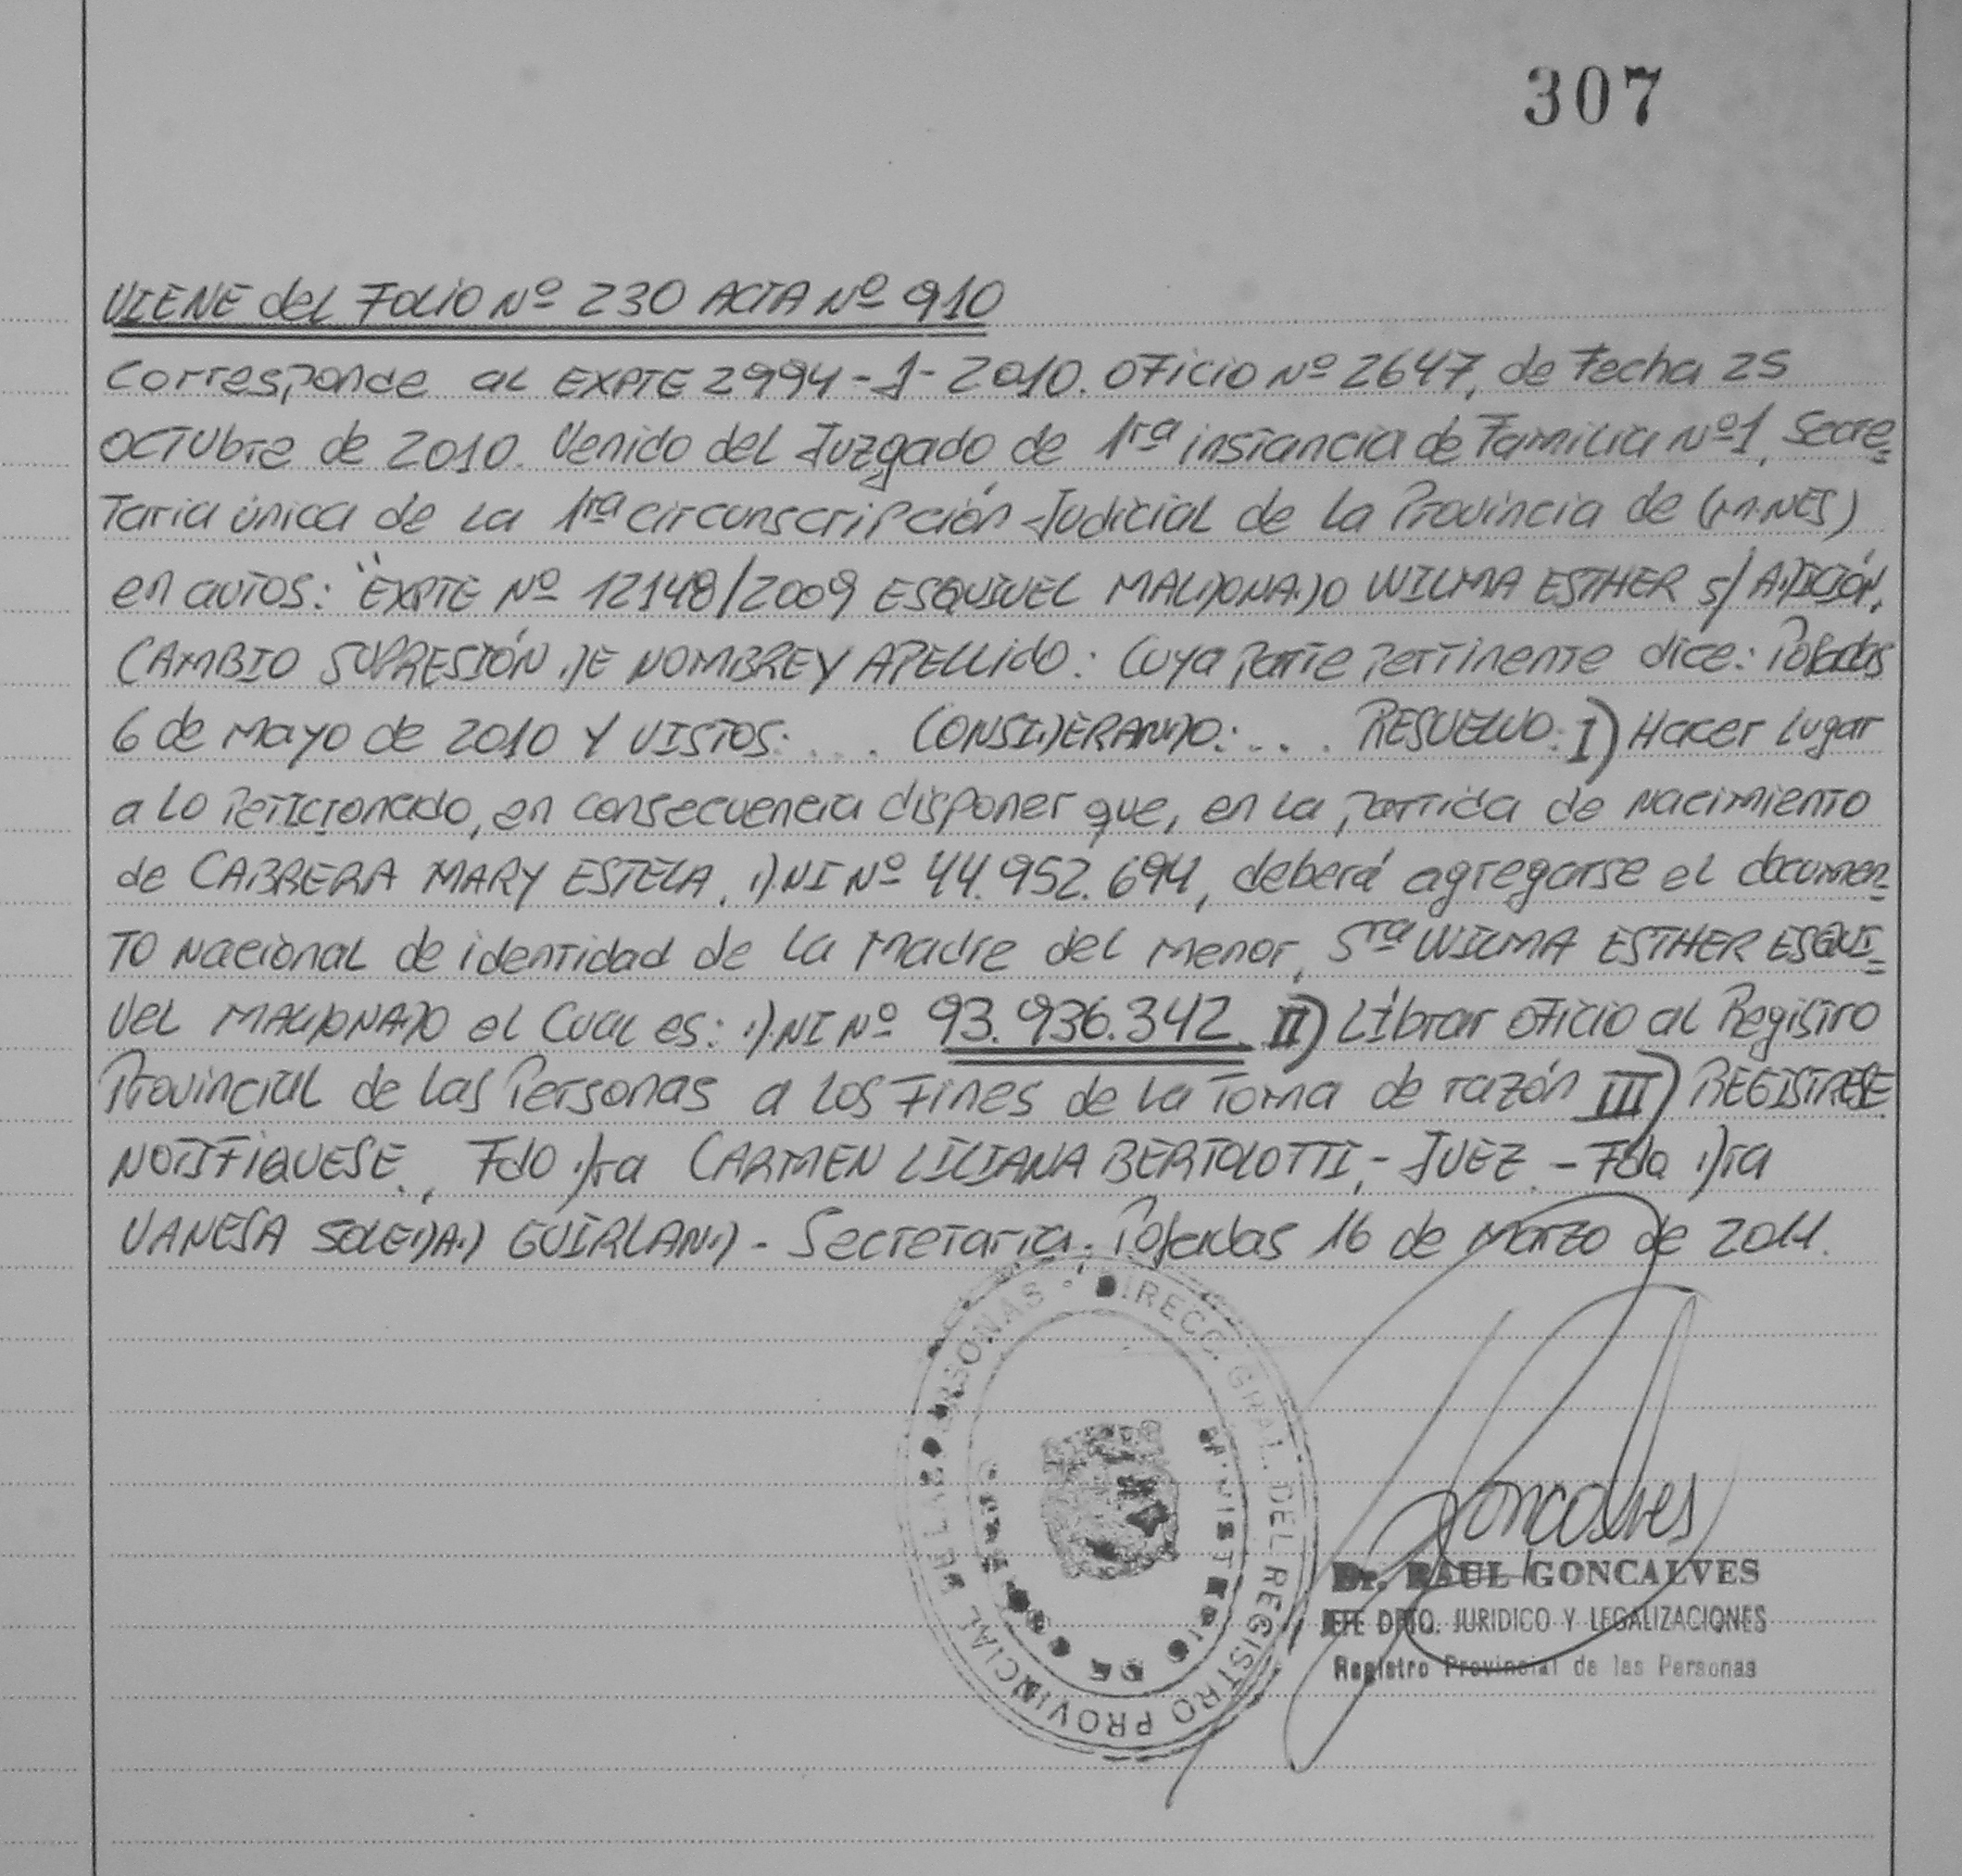 307
VIENE del FOLIO Nº 230 ACTA Nº 910
Corresponde al EXPTE 2994-J-2010. OFICIO Nº 2647, de Fecha 25
OCTUbre de 2010. Venido del Juzgado de 1ra instancia de Familia Nº1, Secre=
Taria única de la 1ra circunscripción Judicial de la Provincia de (MNES)
en autos: "EXPTE Nº 12148/2009 ESQUIVEL MALDONADO WILMA ESTHER S/ ADICIÓN,
CAMBIO SUPRESIÓN DE NOMBRE Y APELLIDO: Cuya parte pertinente dice: Posadas
6 de mayo de 2010 Y VISTOS:.... CONSIDERANDO:.... RESUELVO: I) Hacer lugar
a lo Peticionado, en consecuencia disponer que, en la partida de nacimiento
de CABRERA MARY ESTELA, DNI Nº 44.952.694, deberá agregarse el documen=
TO Nacional de identidad de la Madre del menor, Sra WILMA ESTHER ESQUI=
VEL MALDONADO el Cual es: DNI Nº 93.936.342. II) Líbrar oficio al Registro
Provincial de las Personas a los Fines de la Toma de razón III) REGISTRESE
NOTIFIQUESE., Fdo Dra CARMEN LILIANA BERTOLOTTI,- JUEZ.- Fdo Dra
VANESA SOLEDAD GUIRLAND - Secretaria. Posadas 16 de marzo de 2011.
DIRECC. GRAL. DEL REGISTRO PROVINCIAL DE LAS PERSONAS
MINISTERIO DE
Goncalves
Dr. RAUL GONCALVES
JEFE DPTO. JURIDICO Y LEGALIZACIONES
Registro Provincial de las Personas